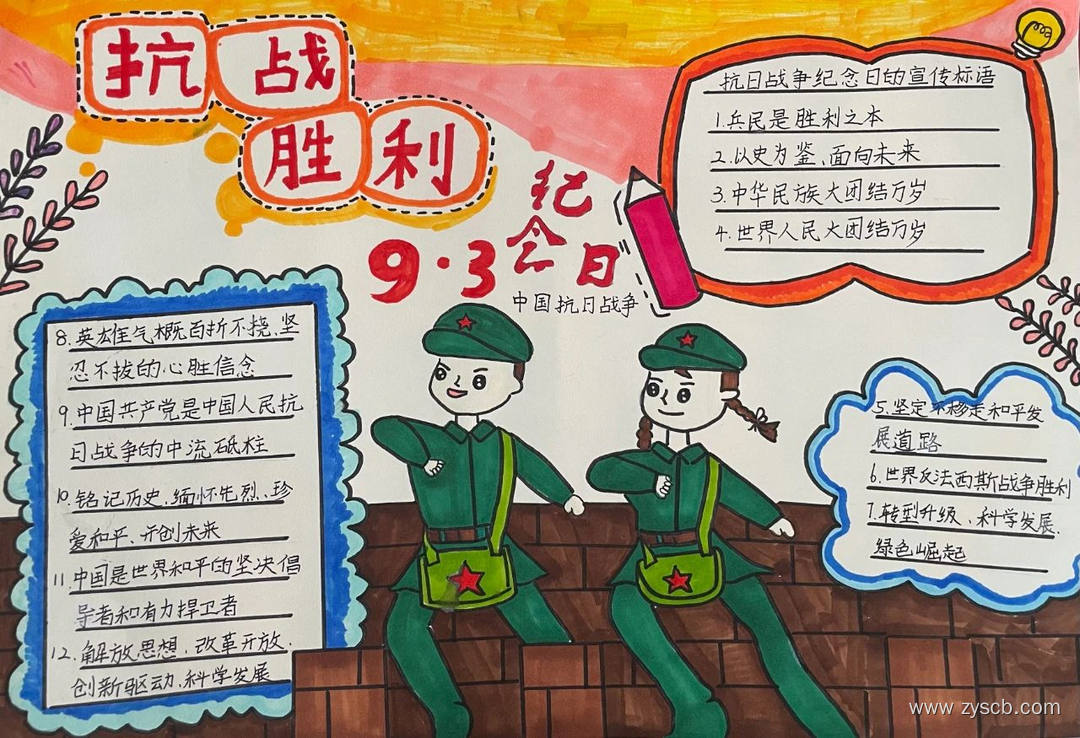 抗战
胜利
纪念日
9·3
中国抗日战争
抗日战争纪念日的宣传标语
1.兵民是胜利之本
2.以史为鉴、面向未来
3.中华民族大团结万岁
4.世界人民大团结万岁
5.坚定不移走和平发
展道路
6.世界反法西斯战争胜利
7.转型升级、科学发展、
绿色崛起
8.英雄气概百折不挠、坚
忍不拔的心胜信念
9.中国共产党是中国人民抗
日战争的中流砥柱
10.铭记历史、缅怀先烈、珍
爱和平、开创未来
11.中国是世界和平的坚决倡
导者和有力捍卫者
12.解放思想、改革开放、
创新驱动、科学发展
www.zyscb.com